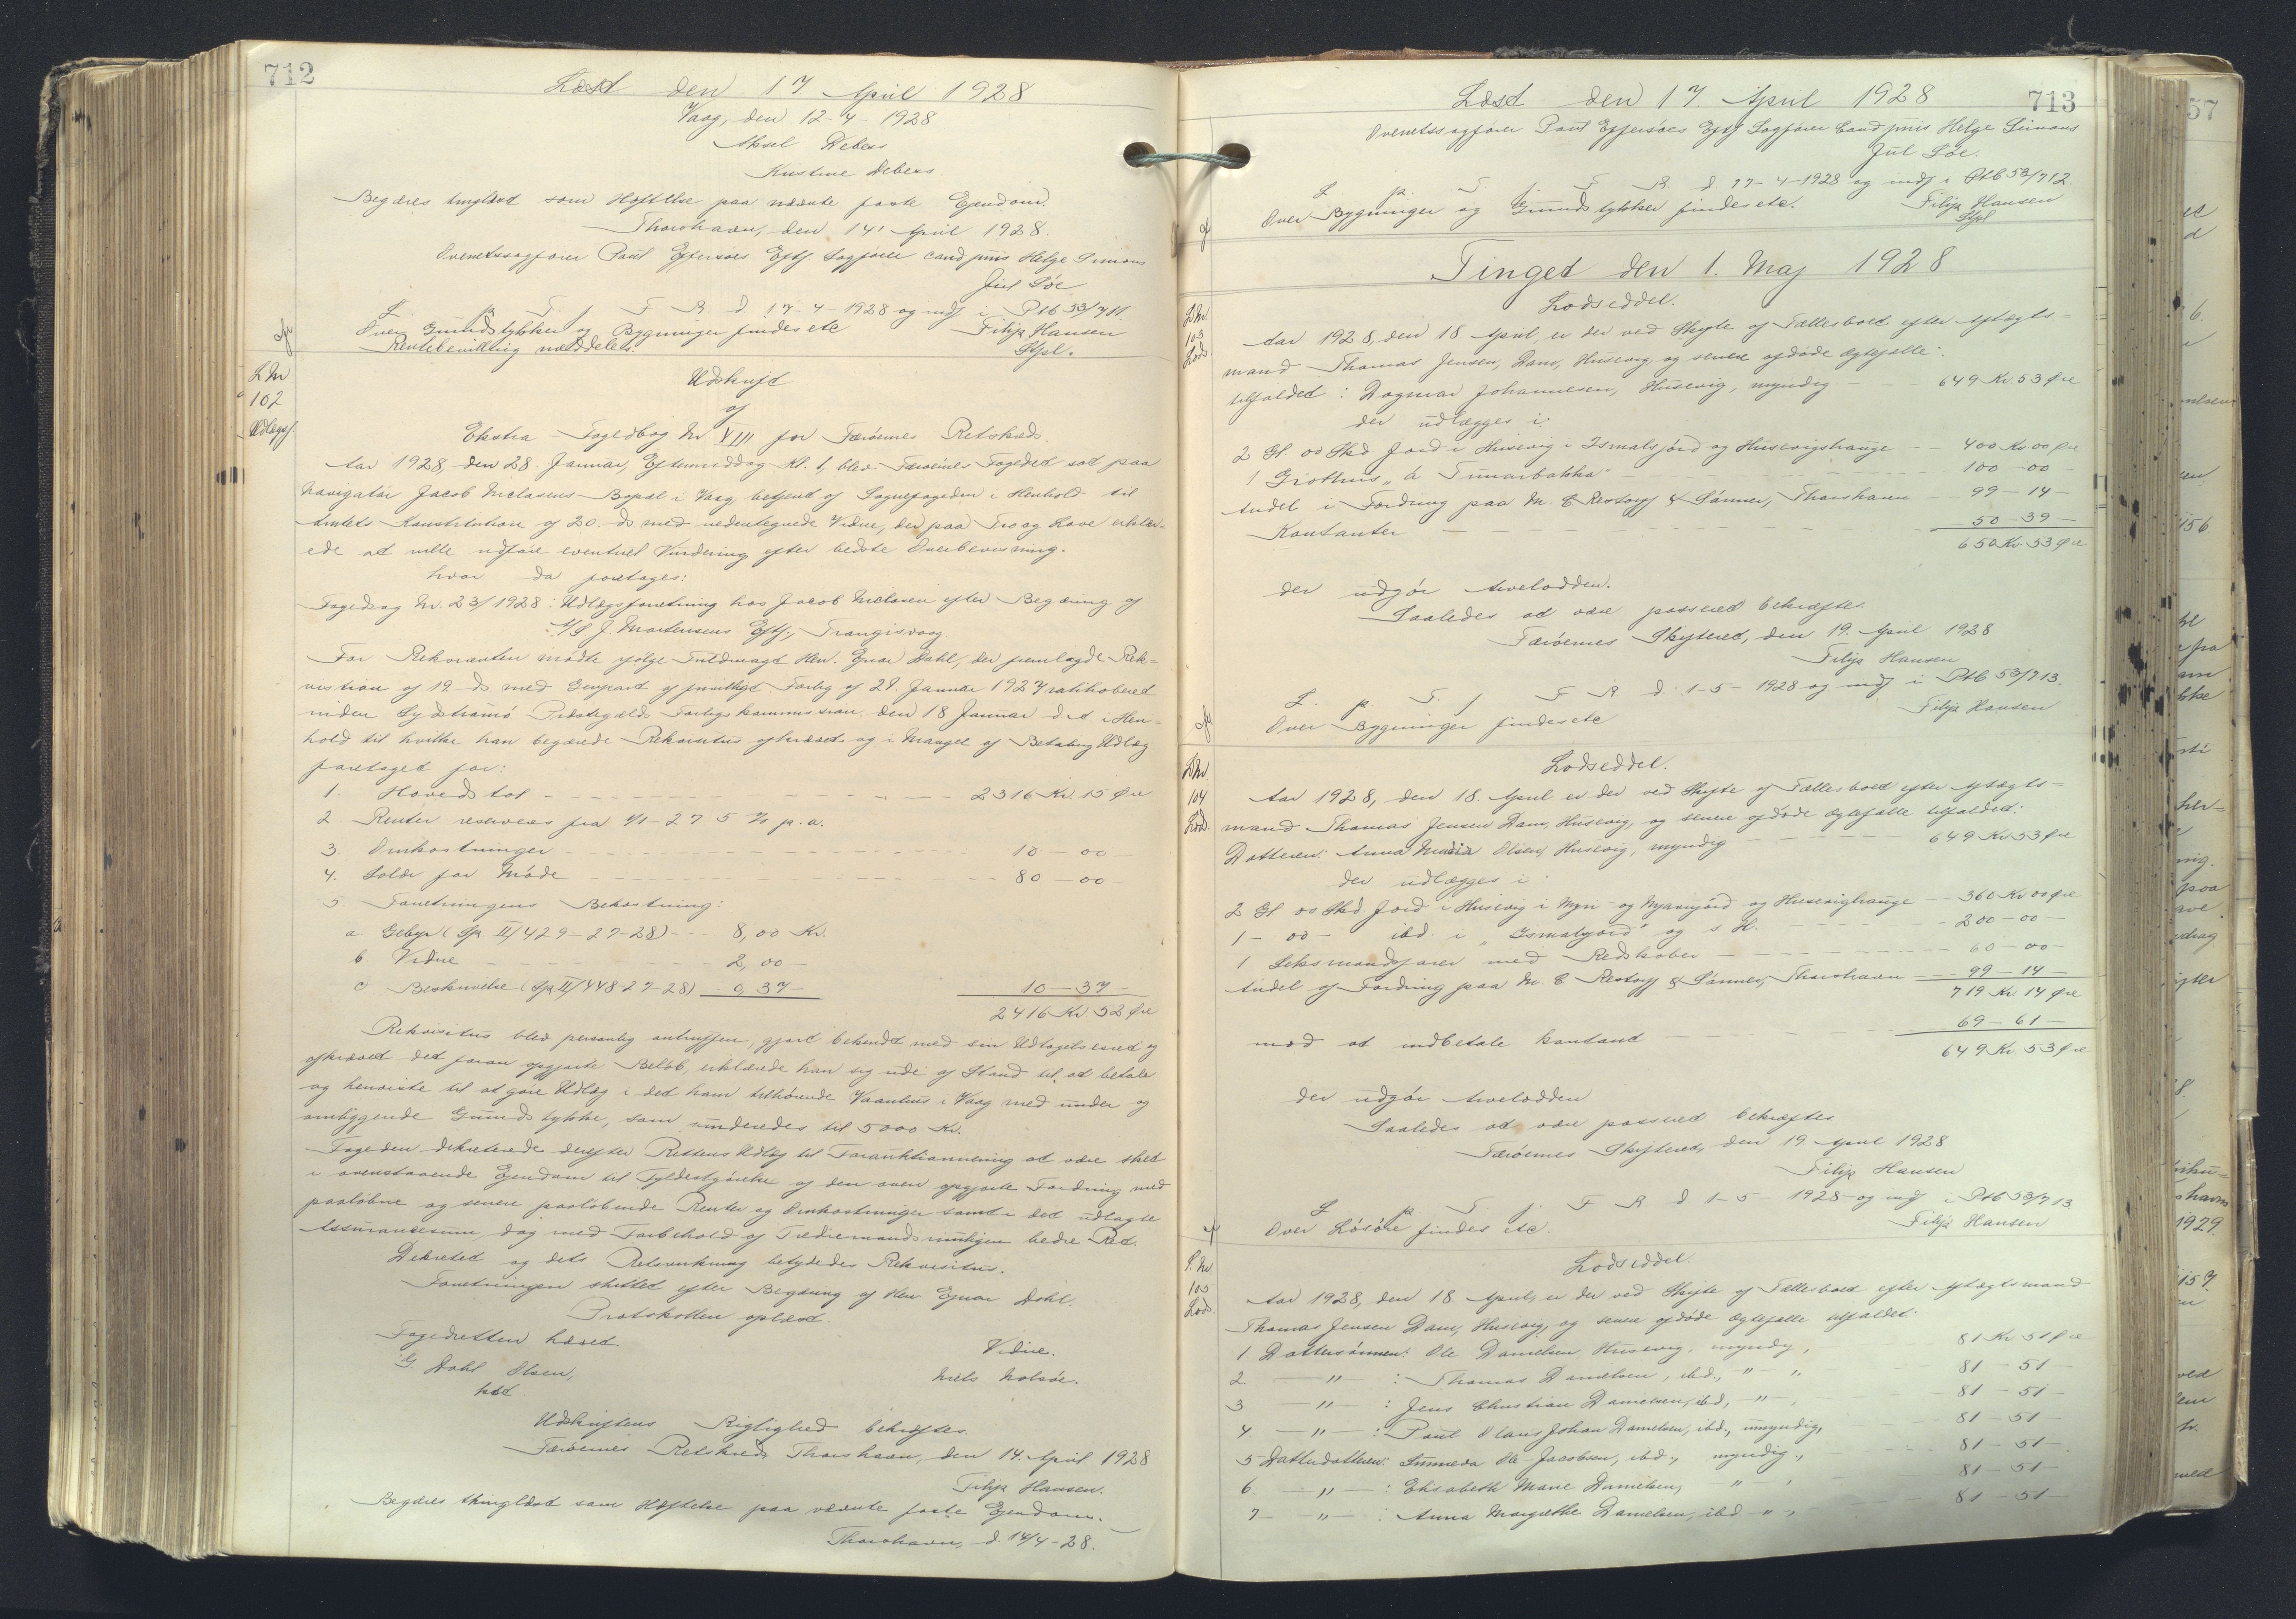 712
Læst den 17. April 1928
Vaag, den 12-4-1928
Aksel Debess
Kristine Debess.
Begæres tinglæst som Hæftelse paa nævnte faste Ejendom.
Thorshavn, den 14' April 1928.
Overretssagfører Poul Effersøes Eftf Sagfører cand juris Helge Simons
Jul Søe
L. p. T. f. F R. d 17-4-1928 og indf i Ptb 53/711.
Over Grundstykker og Bygninger findes etc
Filip Hansen
Rentebevilling meddeles.
Stpl.
L Nr
102
Udlægsf.
Udskrift
af
Ekstra Fogedbog Nr VIII for Færøernes Retskreds.
Aar 1928, den 28. Januar, Eftermiddag Kl. 1, blev Færøernes Fogedret sat paa
Navigatør Jacob Niclasens Bopæl i Vaag, betjent af Sognefogeden i Henhold til
Amtets Konstitution af 20. ds med nedentegnede Vidne, der paa Tro og Love erklær-
ede at ville udføre eventuel Vurdering efter bedste Overbevisning.
hvor da foretages:
Fogedsag Nr. 23/1928: Udlægsforretning hos Jacob Niclasen efter Begæring af
A/S J. Mortensens Eftf., Trangisvaag
For Rekvirenten mødte ifølge Fuldmagt Hr. Ejnar Dahl, der fremlagde Rek-
visition af 19 ds. med Genpart af frivilligt Forlig af 29. Januar 1927 ratihaberet
inden Sydstrømø Præstegælds Forligskommission den 18 Januar d. A. i Hen-
hold til hvilke han begærede Rekvisitus afkrævet og i Mangel af Betaling Udlæg
foretaget for:
1. Hovedstol - - - 2316 Kr. 15 Øre
2 Renter reserveres fra 1/1-27 5 % p.a.
3. Omkostninger - - - 10 - 00 -
4. Salær for Møde - - - 80 - 00 -
5 Forretningens Bekostning:
a Gebyr (Sp. II/429-27-28) - - 8,00 Kr.
b Vidne - - - 2,00 -
c Beskrivelse (Sp II/448-27-28) 0,37 -
10 - 37 -
2416 Kr 52 Øre
Rekvisitus blev personlig antruffen, gjort bekendt med sin Udtagelsesret og
afkrævet det foran opgjorte Beløb, erklærede han sig ude af Stand til at betale
og henviste til at gøre Udlæg i det ham tilhørende Vaanhus i Vaag med under og
omliggende Grundstykke, som vurderedes til 5000 Kr.
Fogeden dekreterede derefter Rettens Udlæg til Forauktionering at være sket
i ovenstaaende Ejendom til Fyldestgørelse af den oven opgjorte Fordring med
paaløbne og senere paaløbende Renter og Omkostninger samt i det udlagte
Assurancesum dog med Forbehold af Trediemands mulige bedre Ret.
Dekretet og dets Retsvirkning betydedes Rekvisitus.
Forretningen sluttet efter Begæring af Herr Ejnar Dahl.
Protokollen oplæst.
Fogedretten hævet.
Vidne.
G. Dahl Olsen,
Niels Nolsøe.
kst
Udskriftens Rigtighed bekræftes.
Færøernes Retskreds Thorshavn, den 14. April 1928
Filip Hansen.
Begæres thinglæst som Hæftelse paa nævnte faste Ejendom.
Thorshavn, d. 14/4-28.
Læst den 17. April 1928
713
Overretssagfører Poul Effersøes Eftf Sagfører Cand juris Helge Simons
Jul Søe.
L. p. T. f. F R. d 17-4-1928 og indf i Ptb 53/712.
Over Bygninger og Grundstykker findes etc.
Filip Hansen
Stpl
Tinget den 1. Maj 1928
Lodseddel.
L Nr.
103
Lods.
Aar 1928, den 18 April, er der ved Skifte af Fællesboet efter Aftægts-
mand Thomas Jensen, Dam, Husevig og senere afdøde Ægtefælle
tilfaldet: Dagmar Johannesen, Husevig, myndig - - 649 Kr. 53 Øre
der udlægges i:
2 Gl 00 Skd Jord i Husevig i Ismalsjørd og Husevigshauge - - 400 Kr 00 Øre
1 Grothus „á Timarbakka" - - - 100 - 00 -
Andel i Fordring paa M. C Restorff & Sønner, Thorshavn - 99 - 14 -
Kontanter - - - 50 - 39 -
650 Kr. 53 Øre
der udgør Arvelodden.
Saaledes at være passeret bekræftes.
Færøernes Skifteret, den 19. April 1928
Filip Hansen
L. p. T. f F R d. 1-5-1928 og indf i Ptb 53/713.
Over Bygninger findes etc
Filip Hansen
Lodseddel.
L Nr.
104
Lods.
Aar 1928, den 18. April er der ved Skifte af Fællesboet efter Aftægts-
mand Thomas Jensen Dam, Husevig, og senere afdøde Ægtefælle tilfaldet:
Datteren: Anna Maria Olsen, Husevig, myndig - - 649 Kr 53 Øre
der udlægges i:
2 Gl 00 Skd Jord i Husevig i Myri og Nyasujørd og Husevighauge - - 360 Kr 00 Øre
1 - 00 - ibd. i „Ismalsjord" og s H. - - 200 - 00 -
1 Seksmandsfarer med Redskaber - - - 60 - 00 -
Andel af Fordring paa M. C Restorff & Sønner, Thorshavn - - 99 - 14 -
719 Kr 14 Øre
mod at indbetale kontant - - - 69 - 61 -
649 Kr. 53 Øre
der udgør Arvelodden
Saaledes at være passeret bekræftes
Færøernes Skifteret, den 19 April 1928
Filip Hansen
L p T. f. F R d 1-5-1928 og indf i Ptb 53/713
Over Løsøre findes etc.
Filip Hansen
Lodseddel.
L. Nr
105
Lods.
Aar 1928, den 18 April, er der ved Skifte af Fællesboet efter Aftægtsmand
Thomas Jensen Dam, Husevig, og senere afdøde Ægtefælle tilfaldet:
1 Dattersønnen: Ole Danielsen, Husevig, myndig, 81 Kr 51 Øre
2 - " - : Thomas Danielsen, ibd., " " 81 - 51 -
3 - " - : Jens Christian Danielsen, ibd, - " - , 81 - 51 -
4 - " - : Poul Olaus Johan Danielsen, ibd., umyndig, 81 - 51
5 Datterdatteren: Sunneva Ole Jacobsen, ibd., myndig, 81 - 51 -
6. - " - : Elisabeth Marie Danielsen, " " 81 - 51 -
7 - " - : Anna Margrethe Danielsen, ibd - " - 81 - 51 -
57